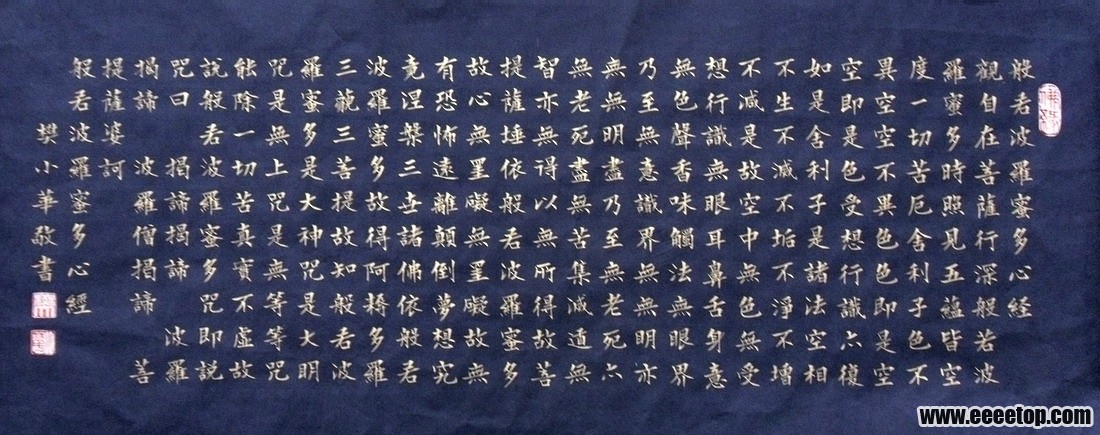 般若波羅蜜多心経
觀自在菩薩行深般若波
羅蜜多時照見五蘊皆空
度一切苦厄舍利子色不
異空空不異色色即是空
空即是色受想行識亦復
如是舍利子是諸法空相
不生不滅不垢不淨不增
不減是故空中無色無受
想行識無眼耳鼻舌身意
無色聲香味觸法無眼界
乃至無意識界無無明亦
無無明盡乃至無老死亦
無老死盡無苦集滅道無
智亦無得以無所得故菩
提薩埵依般若波羅蜜多
故心無罣礙無罣礙故無
有恐怖遠離顛倒夢想究
竟涅槃三世諸佛依般若
波羅蜜多故得阿耨多羅
三藐三菩提故知般若波
羅蜜多是大神咒是大明
咒是無上咒是無等等咒
能除一切苦真實不虛故
說般若波羅蜜多咒即說
咒曰 揭諦揭諦 波羅
揭諦 波羅僧揭諦 菩
提薩婆訶
般若波羅蜜多心經
樊小華敬書
www.eeeetop.com